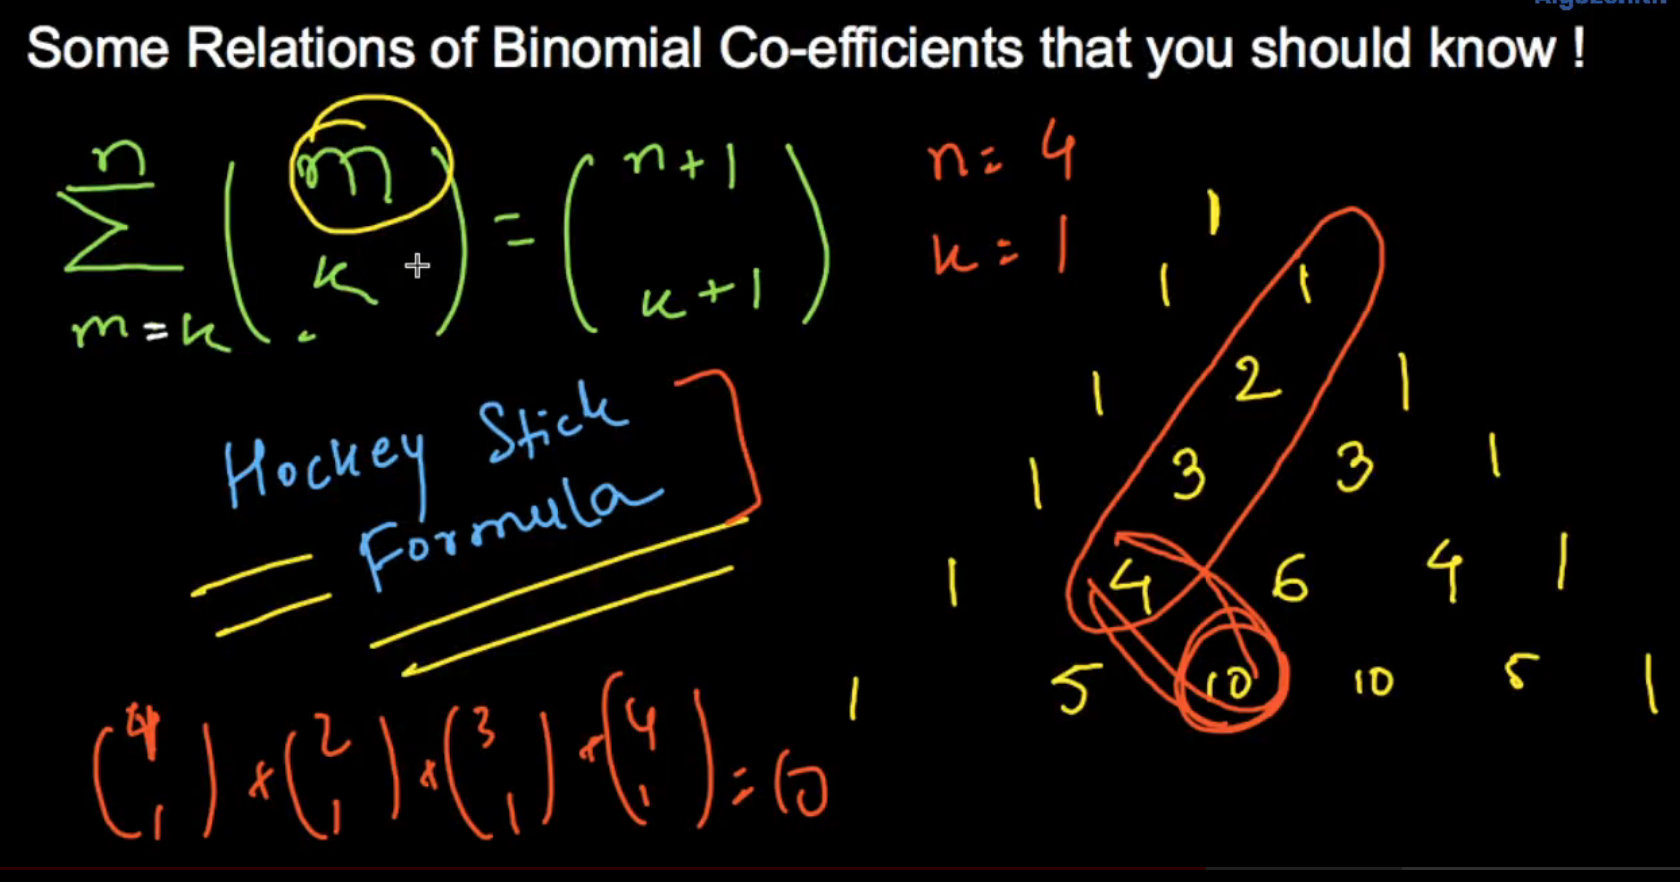 Some Relations of Binomial Co-efficients that you should know !
n
∑ ( m k ) = ( n+1 k+1 )
m=k
n = 4
k = 1
Hockey Stick
Formula
1
1 1
1 2 1
1 3 3 1
1 4 6 4 1
1 5 10 10 5 1
( 1 ) + ( 2 1 ) + ( 3 1 ) + ( 4 1 ) = 10